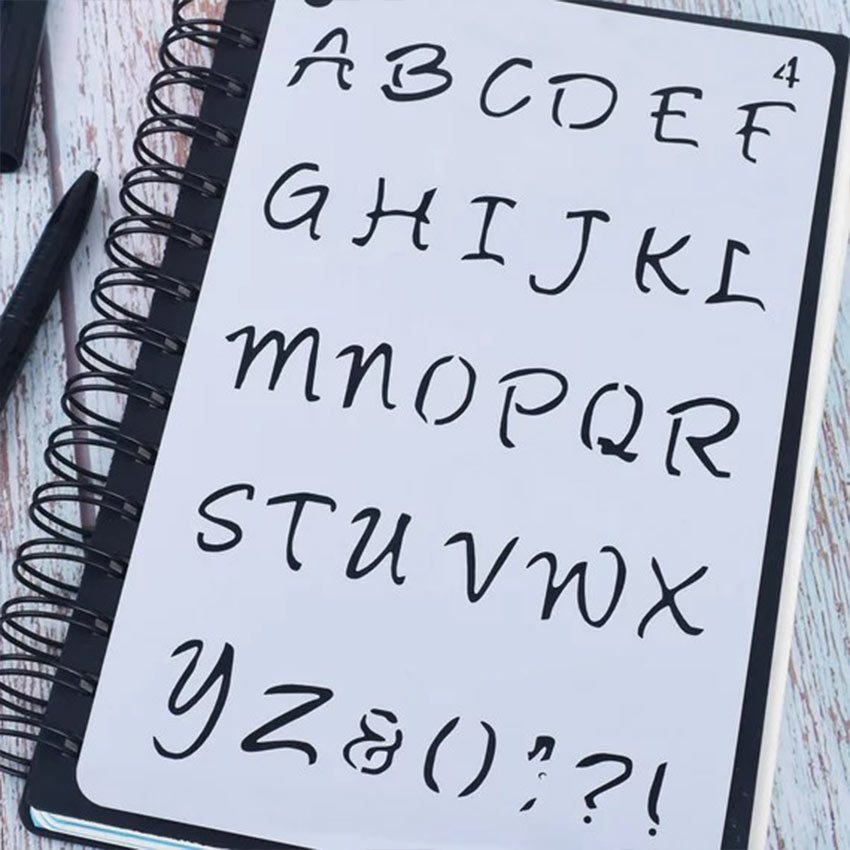 4
A B C D E F
G H I J K L
M N O P Q R
S T U V W X
Y Z & ( ) ? !